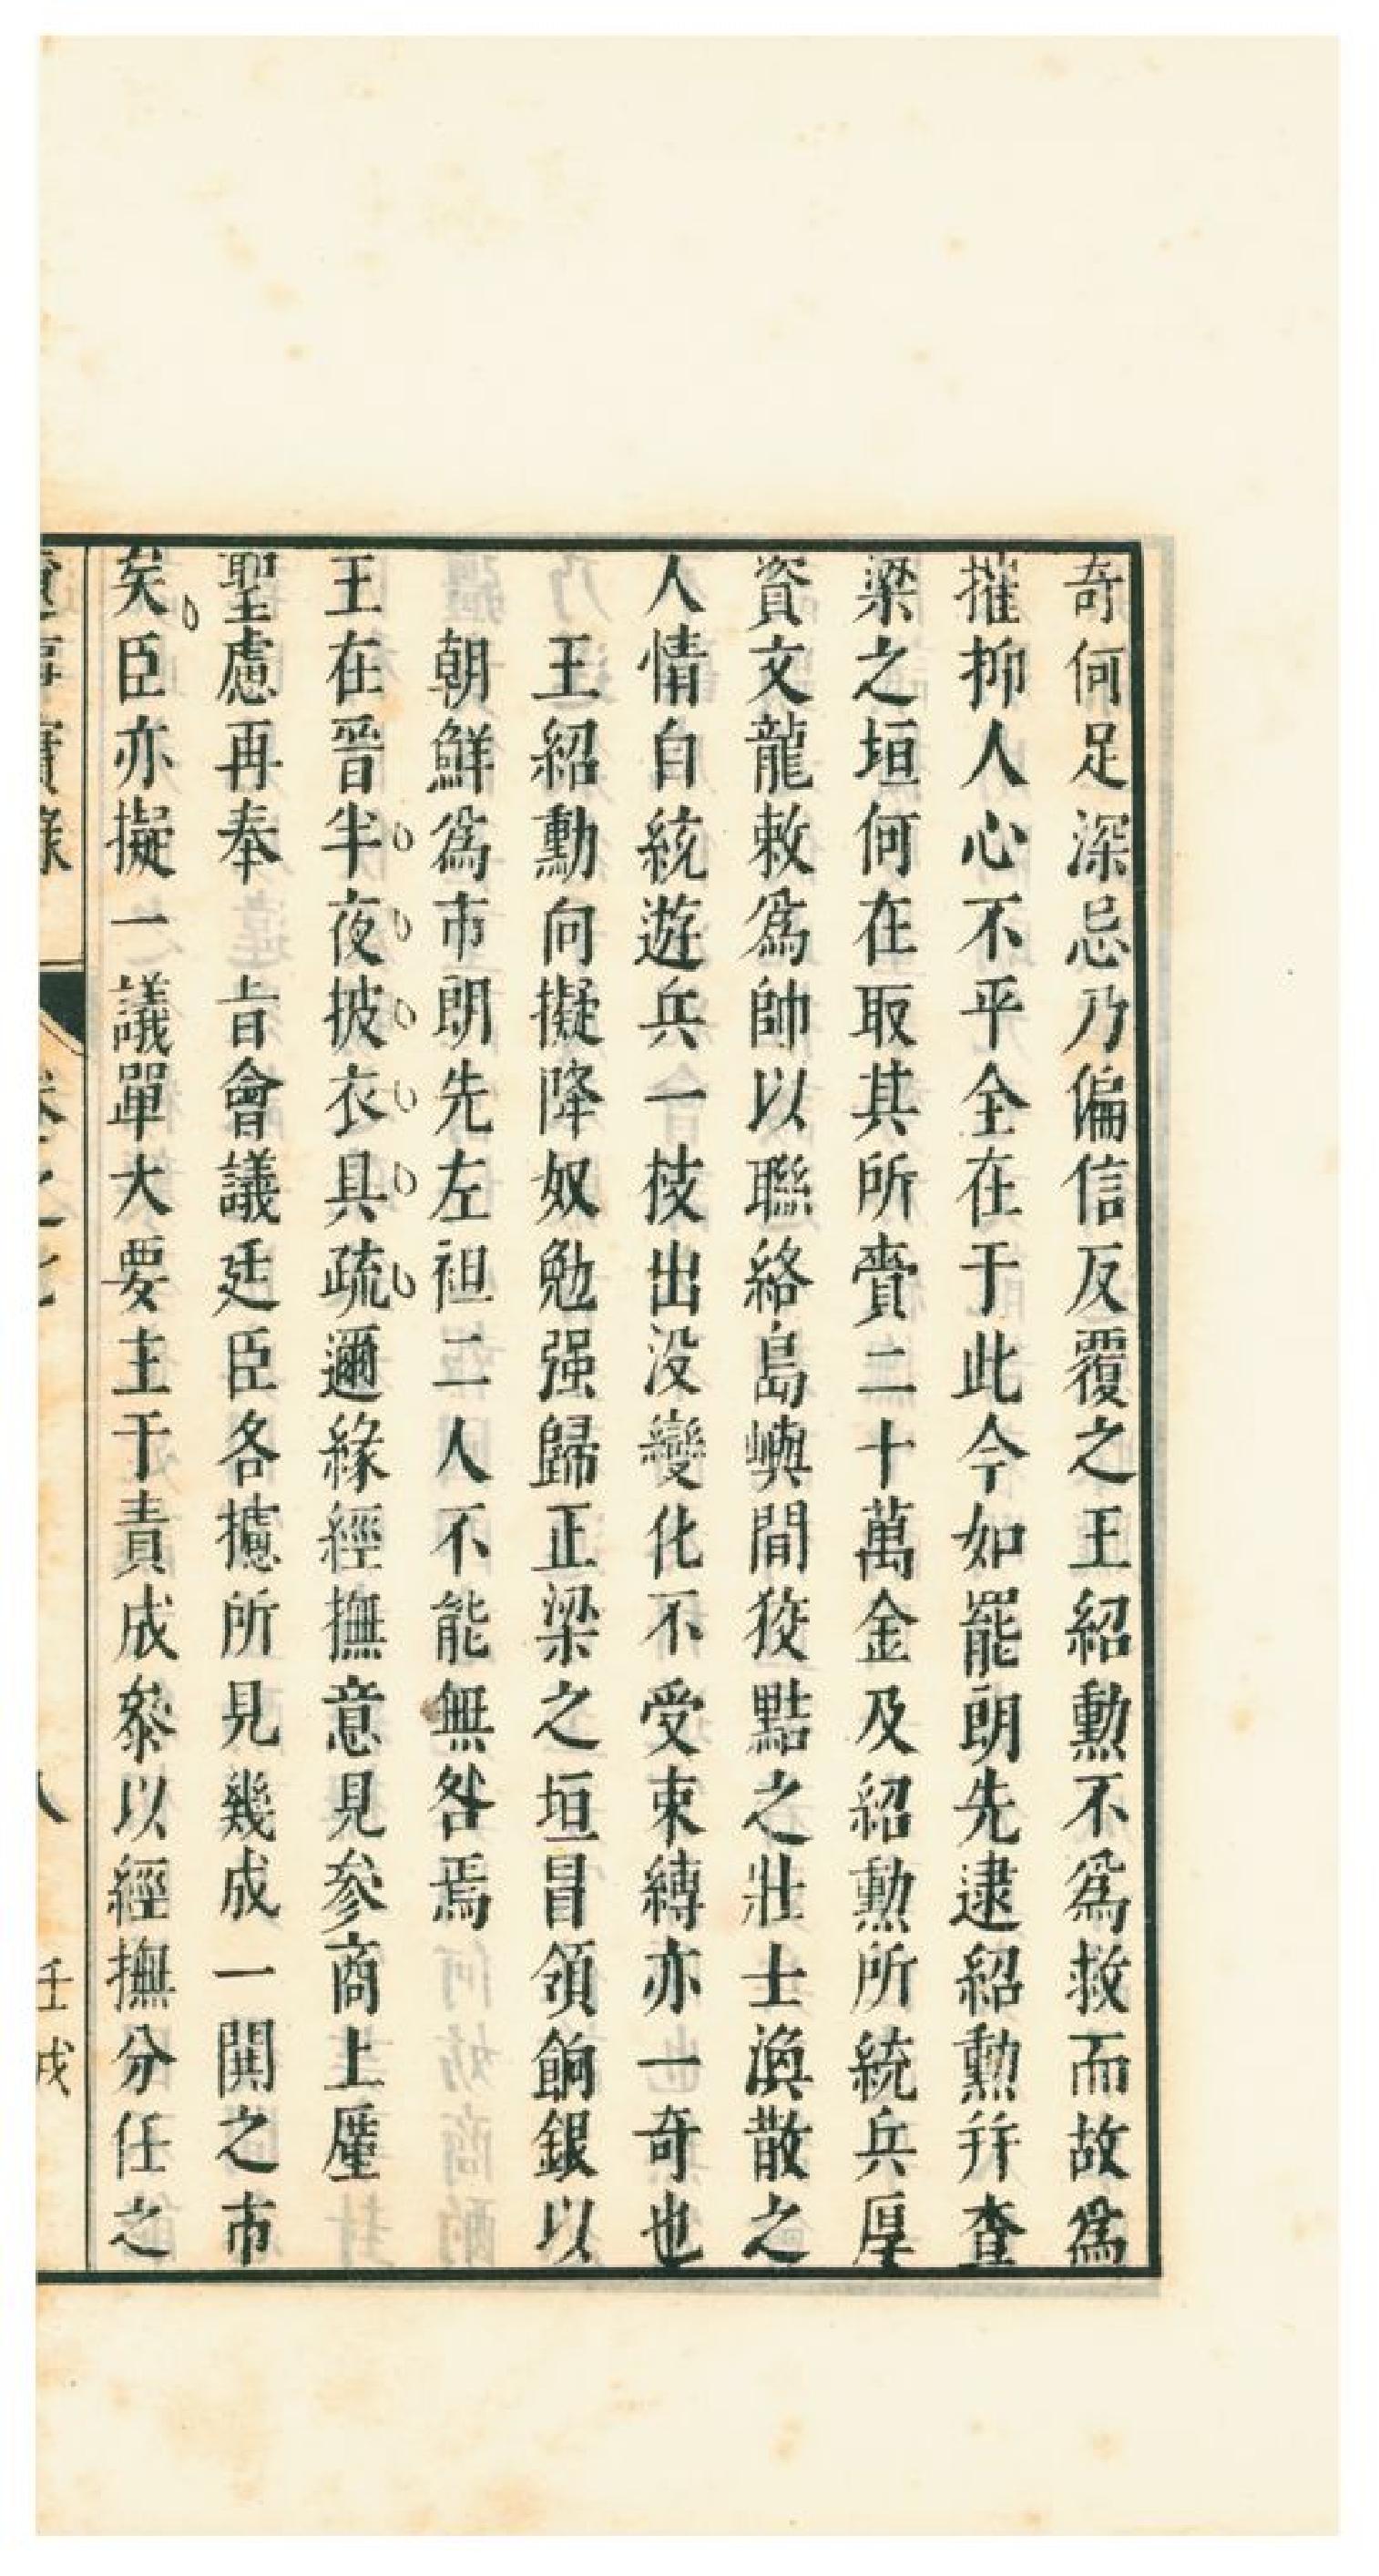 奇何足深忌乃偏信反覆之王紹勳不爲救而故爲
摧抑人心不平全在于此今如罷朗先逮紹勳并查
梁之垣何在取其所賫二十萬金及紹勳所統兵厚
資文龍敕爲帥以聯絡島嶼間狡黠之壯士渙散之
人情自統遊兵一枝出没變化不受束縛亦一奇也
王紹勳向擬降奴勉强歸正梁之垣冒領餉銀以
朝鮮爲市朗先左袒二人不能無咎焉
王在晉半夜披衣具疏邇緣經撫意見參商上厪
聖慮再奉旨會議廷臣各攄所見幾成一鬨之市
矣臣亦擬一議單大要主于責成叅以經撫分任之
實錄
八
壬戌